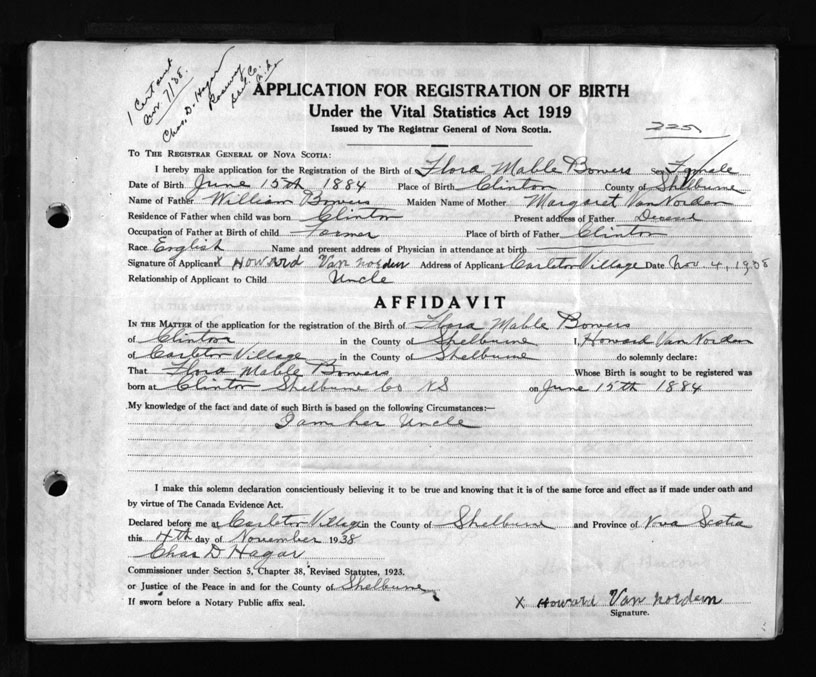 1 Cert sent
Nov 7/38.
Chas. D. Hagar
Roseway
Shel. Co.
APPLICATION FOR REGISTRATION OF BIRTH
Under the Vital Statistics Act 1919
Issued by The Registrar General of Nova Scotia.
225
TO THE REGISTRAR GENERAL OF NOVA SCOTIA:
I hereby make application for the Registration of the Birth of Flora Mable Bowers Sex Female
Date of Birth June 15th 1884 Place of Birth Clinton County of Shelburne
Name of Father William Bowers Maiden Name of Mother Margaret VanNorden
Residence of Father when child was born Clinton Present address of Father
Occupation of Father at Birth of child Farmer Place of birth of Father Clinton
Race English Name and present address of Physician in attendance at birth
Signature of Applicant X Howard Van norden Address of Applicant Carleton Village Date Nov. 4, 1938
Relationship of Applicant to Child Uncle
AFFIDAVIT
IN THE MATTER of the application for the registration of the Birth of Flora Mable Bowers
of Clinton in the County of Shelburne I, Howard Van Norden
of Carleton Village in the County of Shelburne do solemnly declare:
That Flora Mable Bowers Whose Birth is sought to be registered was
born at Clinton Shelburne Co NS on June 15th 1884
My knowledge of the fact and date of such Birth is based on the following Circumstances:—
I am her Uncle
I make this solemn declaration conscientiously believing it to be true and knowing that it is of the same force and effect as if made under oath and
by virtue of The Canada Evidence Act.
Declared before me at Carleton Village in the County of Shelburne and Province of Nova Scotia
this 4th day of November 1938
Chas D Hagar
Commissioner under Section 5, Chapter 38, Revised Statutes, 1923.
or Justice of the Peace in and for the County of Shelburne
If sworn before a Notary Public affix seal.
X Howard Van nordern
Signature.